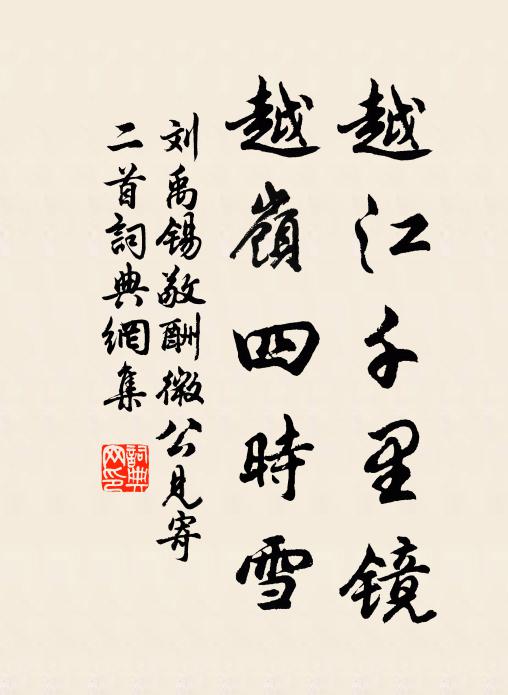 越江千里镜
越嶺四時雪
刘禹锡敬酬微公見寄
二首詞典網集
詞典网印